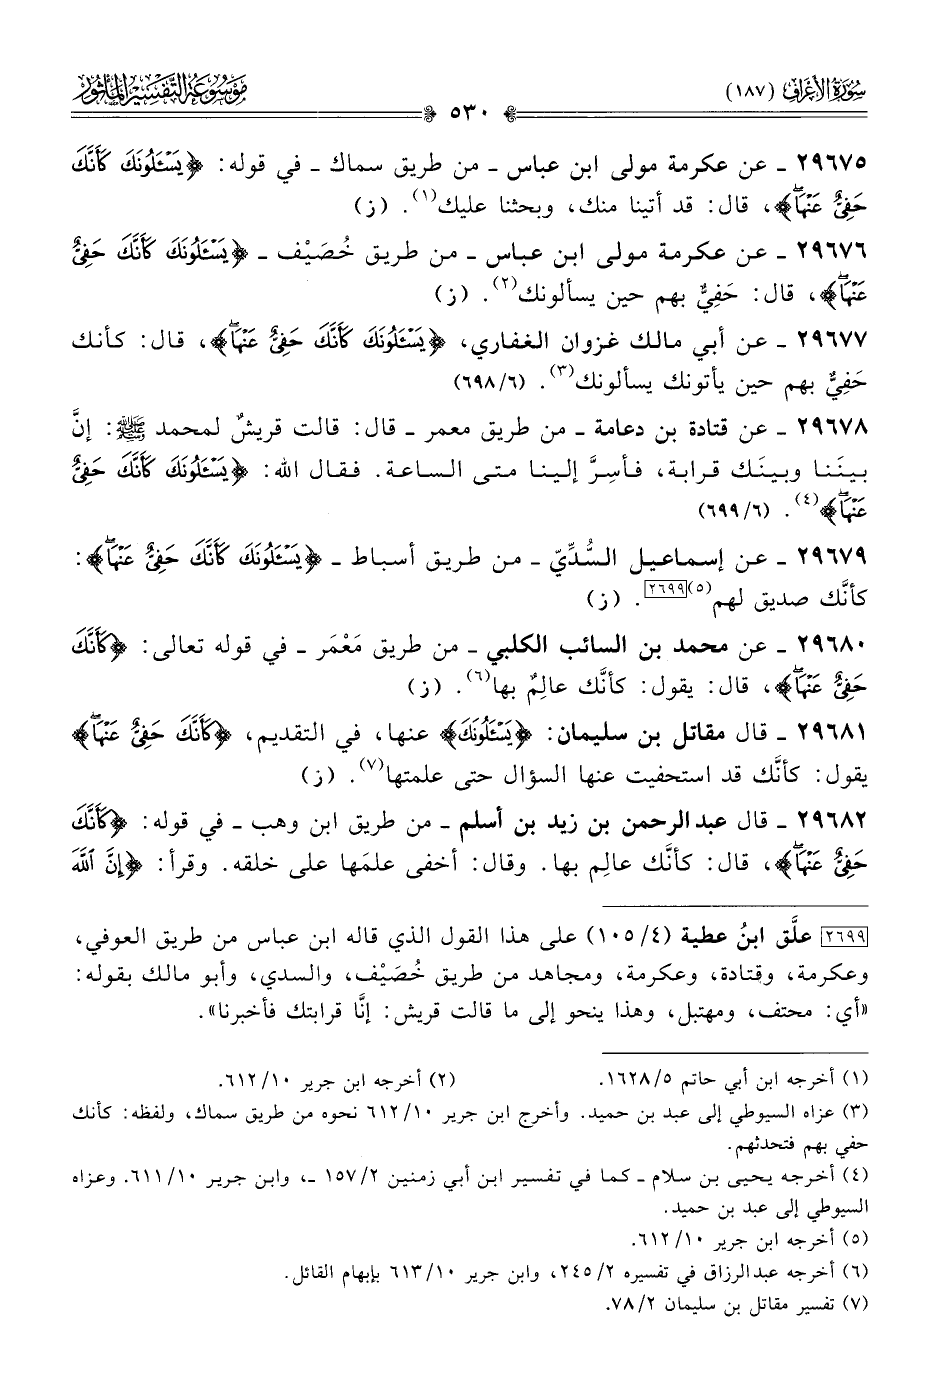 سُورَةُ الأَعْرَافِ (١٨٧)
موسوعة التفسير المأثور
٥٣٠
٢٩٦٧٥ ـ عن عكرمة مولى ابن عباس ـ من طريق سماك ـ في قوله: ﴿يَسْـَٔلُونَكَ كَأَنَّكَ
حَفِيٌّ عَنْهَا﴾، قال: قد أتينا منك، وبحثنا عليك(١). (ز)
٢٩٦٧٦ ـ عن عكرمة مولى ابن عباس ـ من طريق خُصَيْف ـ ﴿يَسْـَٔلُونَكَ كَأَنَّكَ حَفِيٌّ
عَنْهَا﴾، قال: حَفِيٌّ بهم حين يسألونك(٢). (ز)
٢٩٦٧٧ ـ عن أبي مالك غزوان الغفاري، ﴿يَسْـَٔلُونَكَ كَأَنَّكَ حَفِيٌّ عَنْهَا﴾، قال: كأنك
حَفِيٌّ بهم حين يأتونك يسألونك(٣). (٦/ ٦٩٨)
٢٩٦٧٨ ـ عن قتادة بن دعامة ـ من طريق معمر ـ قال: قالت قريشٌ لمحمد ﷺ: إنَّ
بينَنا وبينَك قرابة، فأسِرَّ إلينا متى الساعة. فقال الله: ﴿يَسْـَٔلُونَكَ كَأَنَّكَ حَفِيٌّ
عَنْهَا﴾(٤). (٦/ ٦٩٩)
٢٩٦٧٩ ـ عن إسماعيل السُّدِّيّ ـ من طريق أسباط ـ ﴿يَسْـَٔلُونَكَ كَأَنَّكَ حَفِيٌّ عَنْهَا﴾:
كأنَّك صديق لهم(٥)[٢٦٩٩]. (ز)
٢٩٦٨٠ ـ عن محمد بن السائب الكلبي ـ من طريق مَعْمَر ـ في قوله تعالى: ﴿كَأَنَّكَ
حَفِيٌّ عَنْهَا﴾، قال: يقول: كأنَّك عالِمٌ بها(٦). (ز)
٢٩٦٨١ ـ قال مقاتل بن سليمان: ﴿يَسْـَٔلُونَكَ﴾ عنها، في التقديم، ﴿كَأَنَّكَ حَفِيٌّ عَنْهَا﴾
يقول: كأنَّك قد استحفيت عنها السؤال حتى علمتها(٧). (ز)
٢٩٦٨٢ ـ قال عبد الرحمن بن زيد بن أسلم ـ من طريق ابن وهب ـ في قوله: ﴿كَأَنَّكَ
حَفِيٌّ عَنْهَا﴾، قال: كأنَّك عالِم بها. وقال: أخفى علمَها على خلقه. وقرأ: ﴿إِنَّ ٱللَّهَ
[٢٦٩٩] علَّق ابنُ عطية (٤/ ١٠٥) على هذا القول الذي قاله ابن عباس من طريق العوفي،
وعكرمة، وقتادة، وعكرمة، ومجاهد من طريق خُصَيْف، والسدي، وأبو مالك بقوله:
«أي: محتف، ومهتبل، وهذا ينحو إلى ما قالت قريش: إنَّا قرابتك فأخبرنا».
(١) أخرجه ابن أبي حاتم ٥/ ١٦٢٨. (٢) أخرجه ابن جرير ١٠/ ٦١٢.
(٣) عزاه السيوطي إلى عبد بن حميد. وأخرج ابن جرير ١٠/ ٦١٢ نحوه من طريق سماك، ولفظه: كأنك
حفي بهم فتحدثهم.
(٤) أخرجه يحيى بن سلام ـ كما في تفسير ابن أبي زمنين ٢/ ١٥٧ ـ، وابن جرير ١٠/ ٦١١. وعزاه
السيوطي إلى عبد بن حميد.
(٥) أخرجه ابن جرير ١٠/ ٦١٢.
(٦) أخرجه عبد الرزاق في تفسيره ٢/ ٢٤٥، وابن جرير ١٠/ ٦١٣ بإبهام القائل.
(٧) تفسير مقاتل بن سليمان ٢/ ٧٨.